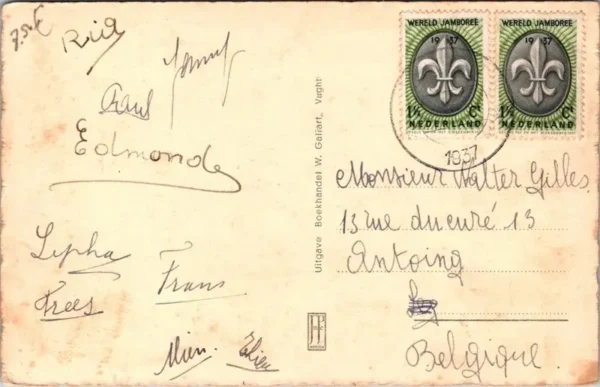 7.5.E
Ria
Paul
Edmonde
Lepha
Frans
Trees
Mien.
WERELD JAMBOREE
1937
1½ Ct
NEDERLAND
WERELD JAMBOREE
1937
1½ Ct
NEDERLAND
1937
Uitgave Boekhandel W. Gallart, Vught
Monsieur Walter Gilles.
13 rue du curé 13
Antoing
Belgique.